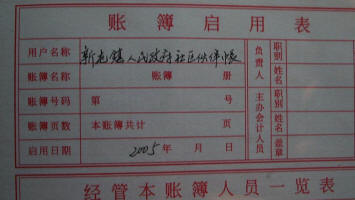 账簿启用表
用户名称 新龙镇人民政府社区伙伴帐 负责人 职别
账簿名称 账簿 册 姓名
账簿号码 第 号 主办会计人员 职别
账簿页数 本账簿共计 页 姓名
启用日期 2005年 月 日 盖章
经管本账簿人员一览表